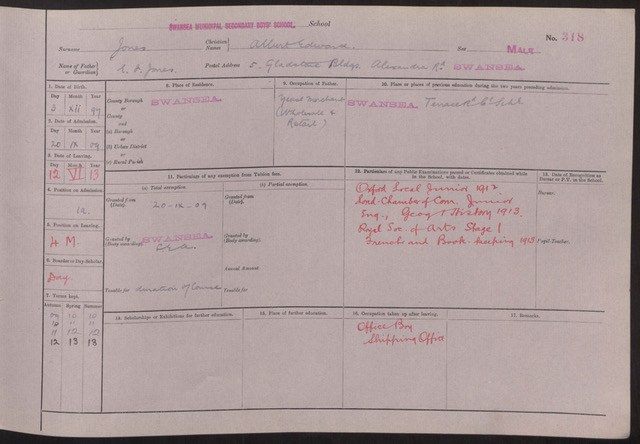 SWANSEA MUNICIPAL SECONDARY BOYS' SCHOOL. School
No. 318
Surname Jones Christian Names Albert Edward Sex MALE
Name of Father or Guardian E. A. Jones. Postal Address 5, Gladstone Bldgs. Alexandra Rd. SWANSEA
1. Date of Birth.
Day Month Year
3 XII 97
2. Date of Admission.
Day Month Year
20 IX 09
3. Date of Leaving.
Day Month Year
12 VI 13
4. Position on Admission.
5. Position on Leaving.
4 M.
6. Boarder or Day Scholar.
Day
7. Terms kept.
Autumn Spring Summer
09 10 10
10 11 11
11 12 12
12 13 13
8. Place of Residence.
County Borough SWANSEA.
or
County
and
(i) Borough
or
(ii) Urban District
or
(iii) Rural Parish
9. Occupation of Father.
(Wholesale &
Retail)
10. Place or places of previous education during the two years preceding admission.
SWANSEA. Terrace Rd. El. Schl.
11. Particulars of any exemption from Tuition fees.
(a) Total exemption.
Granted from (Date). 20-IX-09
Granted by (Body awarding). SWANSEA
Tenable for duration of Course
(b) Partial exemption.
Granted from (Date).
Granted by (Body awarding).
Annual Amount
Tenable for
12. Particulars of any Public Examinations passed or Certificates obtained while in the School, with dates.
Oxford Local Junior 1912.
Lond. Chamber of Com. Junior
Eng., Geog & History 1913.
Royal Soc. of Arts Stage I
French and Book-keeping 1913
13. Date of Recognition as Bursar or P.T. in the School.
Bursar.
Pupil Teacher.
14. Scholarships or Exhibitions for further education.
15. Place of further education.
16. Occupation taken up after leaving.
Office Boy
Shipping Office
17. Remarks.